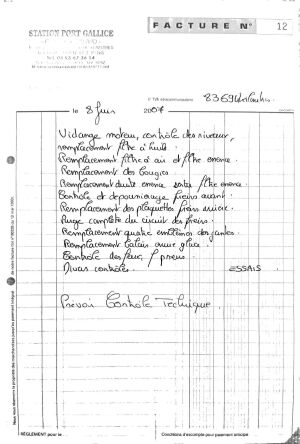 STATION PORT GALLICE
FACTURE N° 12
le 8 Juin 2007
Vidange moteur, contrôle des niveaux,
remplacement filtre à huile.
Remplacement filtre à air et filtre essence.
Remplacement des bougies.
Remplacement durite essence sortie filtre essence.
Contrôle et dépoussiérage freins avant.
Remplacement des plaquettes frein arrière.
Purge complète du circuit des freins.
Remplacement quatre emblèmes des jantes.
Remplacement balais essuie glace.
Contrôle des feux, / pneus.
Divers contrôles. ESSAIS
Prévoir Contrôle Technique.
RÈGLEMENT pour le
Conditions d'escompte pour paiement anticipé